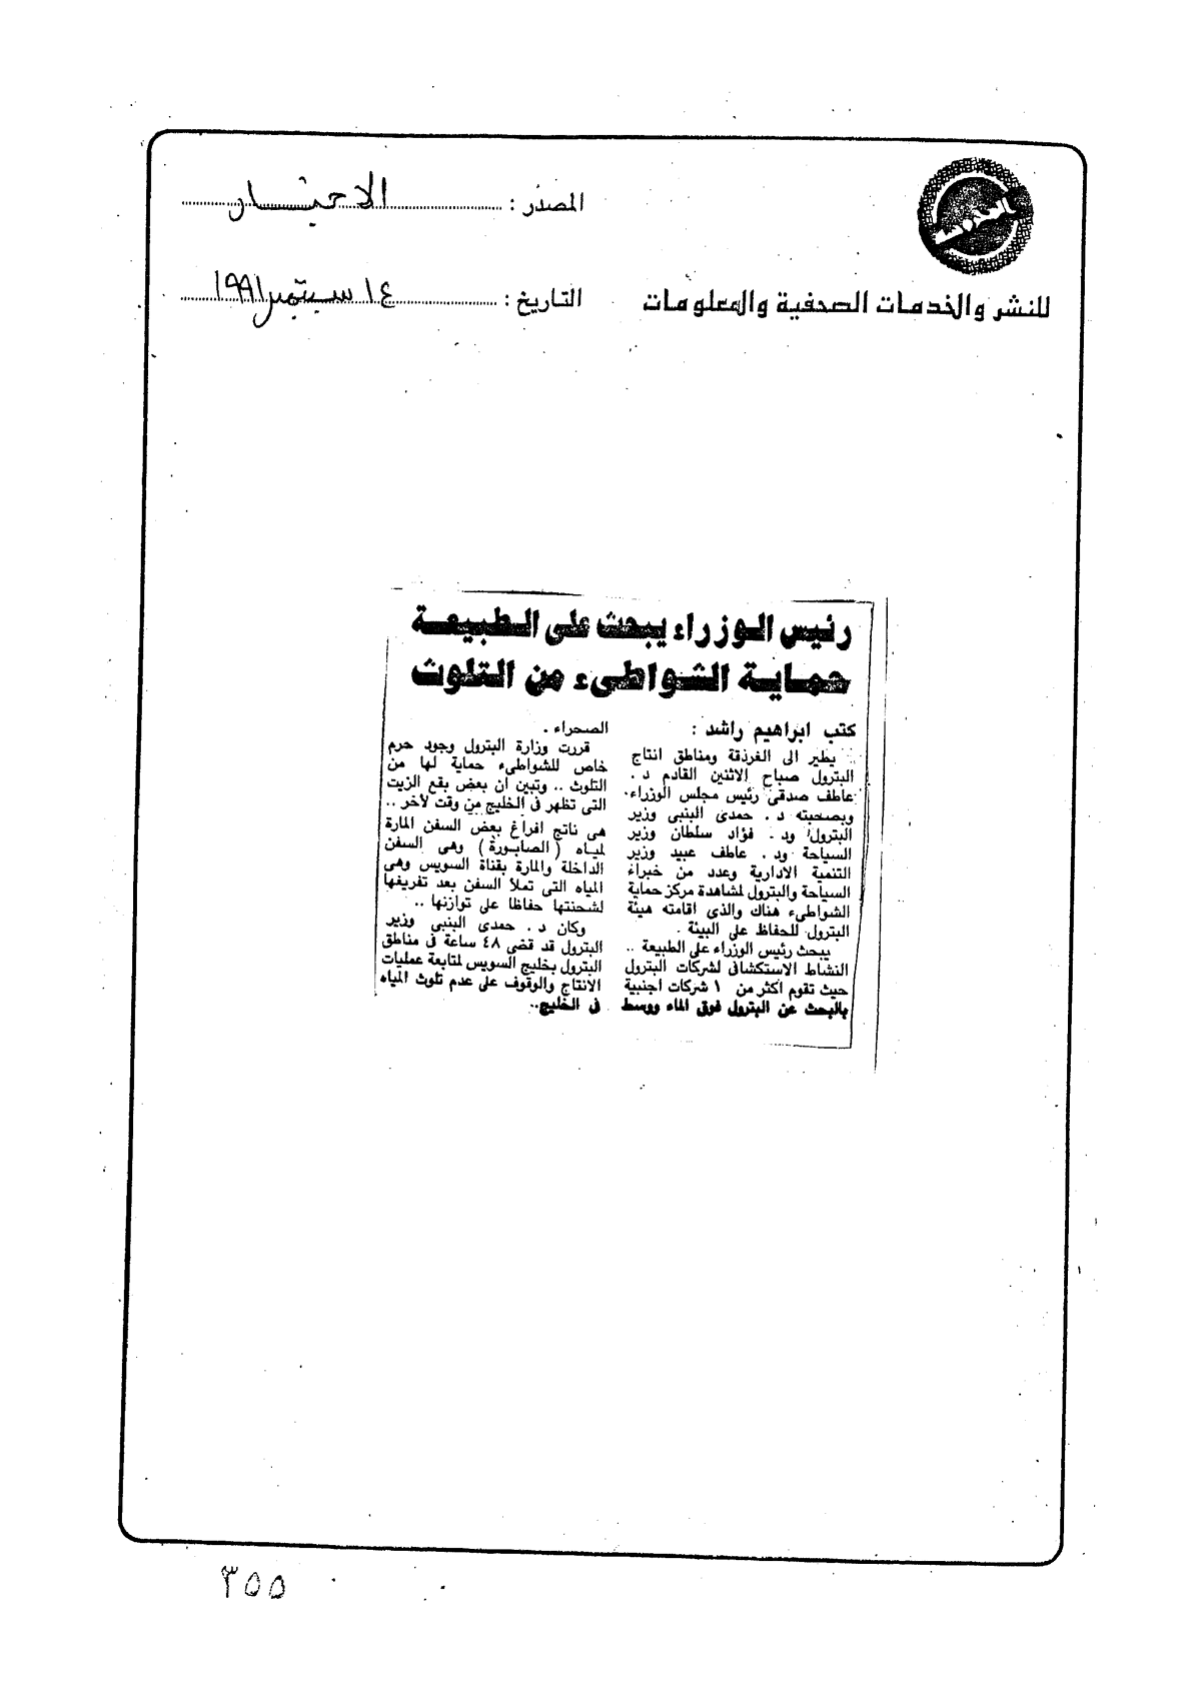 المصدر : الاخبار
للنشر والخدمات الصحفية والمعلومات
التاريخ : ١٤ سبتمبر ١٩٩١
رئيس الوزراء يبحث على الطبيعة
حماية الشواطىء من التلوث
كتب ابراهيم راشد :
يطير الى الغردقة ومناطق انتاج
البترول صباح الاثنين القادم د .
عاطف صدقى رئيس مجلس الوزراء
وبصحبته د . حمدى البنبى وزير
البترول ود . فؤاد سلطان وزير
السياحة ود . عاطف عبيد وزير
التنمية الادارية وعدد من خبراء
السياحة والبترول لمشاهدة مركز حماية
الشواطىء هناك والذى اقامته هيئة
البترول للحفاظ على البيئة .
يبحث رئيس الوزراء على الطبيعة ..
النشاط الاستكشافى لشركات البترول
حيث تقوم اكثر من ١ شركات اجنبية
بالبحث عن البترول فوق الماء ووسط
الصحراء .
قررت وزارة البترول وجود حرم
خاص للشواطىء حماية لها من
التلوث .. وتبين ان بعض بقع الزيت
التى تظهر فى الخليج من وقت لآخر ..
هى ناتج افراغ بعض السفن المارة
لمياه ( الصابورة ) وهى السفن
الداخلة والمارة بقناة السويس وهى
المياه التى تملأ السفن بعد تفريغها
لشحنتها حفاظا على توازنها ..
وكان د . حمدى البنبى وزير
البترول قد قضى ٤٨ ساعة فى مناطق
البترول بخليج السويس لمتابعة عمليات
الانتاج والوقوف على عدم تلوث المياه
فى الخليج ..
٣٥٥